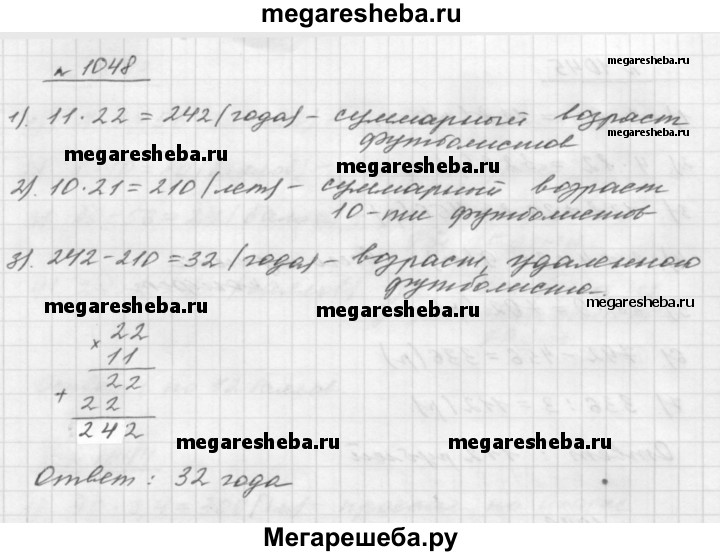 megaresheba.ru
№ 1048
megaresheba.ru
1). 11·22 = 242 (года) – суммарный возраст
футболистов
megaresheba.ru
megaresheba.ru
megaresheba.ru
2). 10·21 = 210 (лет) – суммарный возраст
10-ти футболистов
3). 242-210 = 32 (года) – возраст удаленного
футболиста.
megaresheba.ru
megaresheba.ru
megaresheba.ru
× 22
11
+ 22
22
242
megaresheba.ru
megaresheba.ru
Ответ: 32 года
Мегарешеба.ру